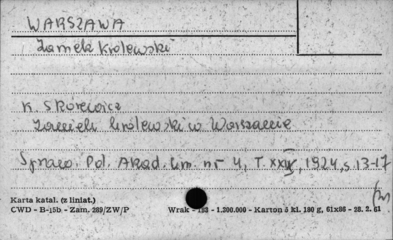 WARSZAWA
Zamek Królewski
K. Skórewicz
Zamek królewski w Warszawie
Sprawo. Pol. Akad. Um. nr 4, T. XXIX, 1924, s. 13-17
Karta katal. (z liniat.)
CWD - B-15b - Zam. 289/ZW/P Wrak - 193 - 1.200.000 - Karton 5 kl. 180 g, 61x86 - 28. 2. 61